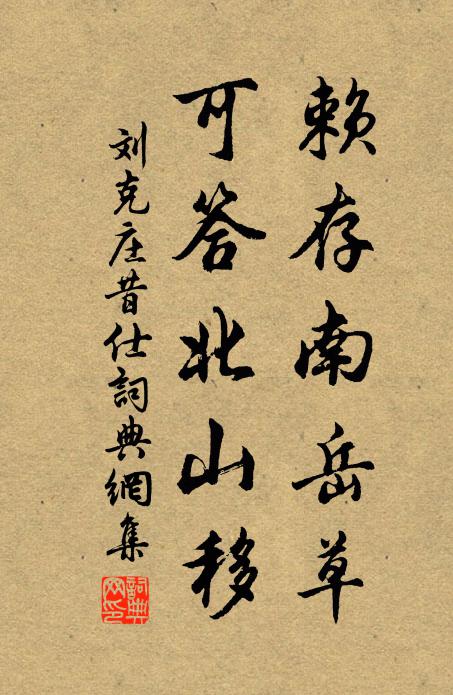 赖存南岳草
可答北山移
刘克庄昔仕詞典網集
詞典
网印